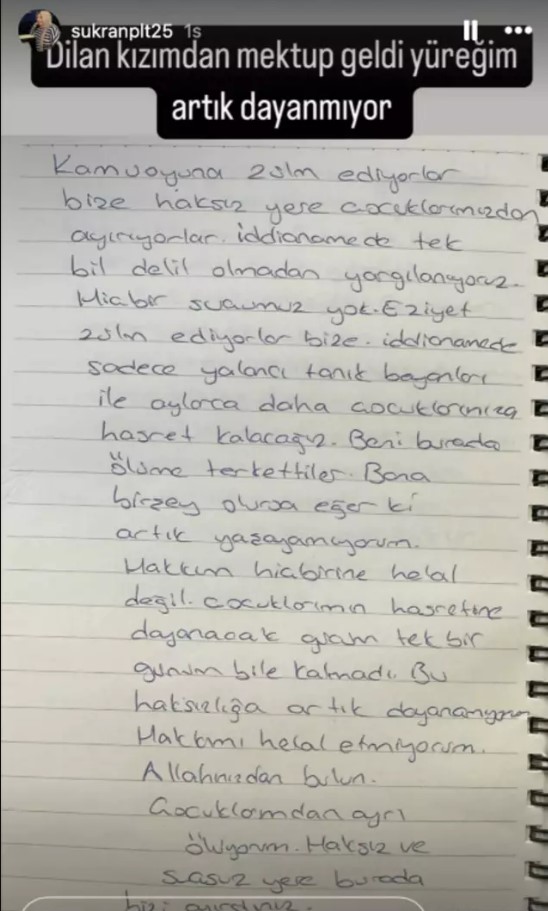 sukranplt25 1s
Dilan kızımdan mektup geldi yüreğim
artık dayanmıyor
Kamuoyuna zulm ediyorlar
bize haksız yere çocuklarımızdan
ayırıyorlar. iddianamede tek
bil delil olmadan yargılanıyoruz.
Hiçbir suçumuz yok. Eziyet
zulm ediyorlar bize. iddianamede
sadece yalancı tanık beyanları
ile aylarca daha çocuklarımıza
hasret kalacağız. Beni burada
ölüme terkettiler. Bana
birşey olursa eğer ki
artık yaşayamıyorum.
Hakkım hiçbirine helal
değil. çocuklarımın hasretine
dayanacak gram tek bir
günüm bile kalmadı. Bu
haksızlığa artık dayanamıyorum
Hakkımı helal etmiyorum.
Allahınızdan bulun.
Çocuklarımdan ayrı
ölüyorum. Haksız ve
suçsuz yere burada
bizi